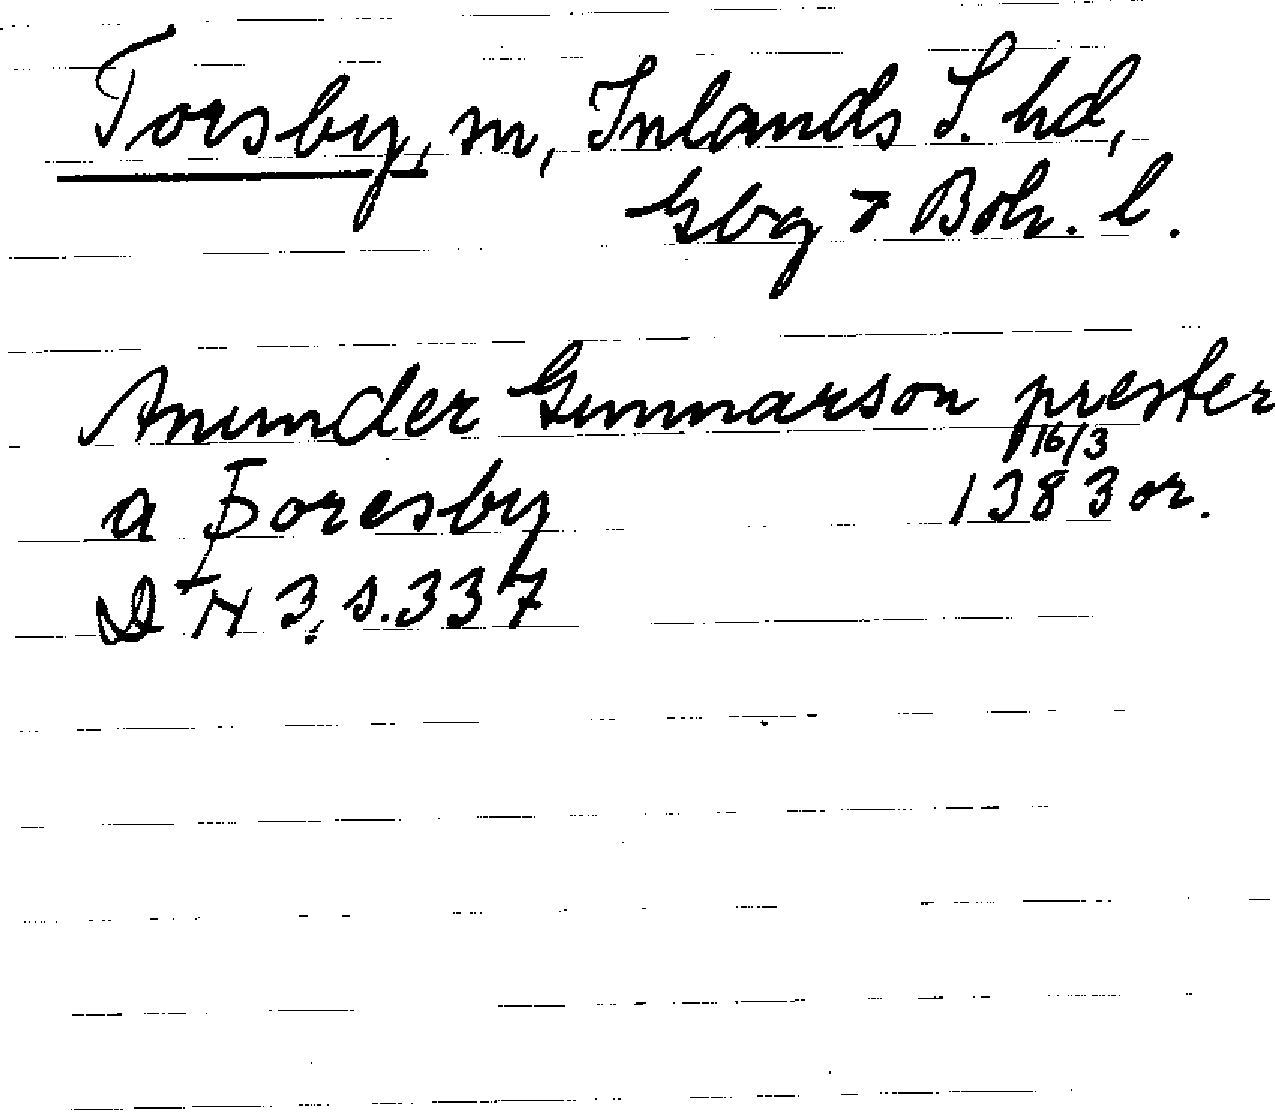 Torsby, sn, Inlands S. hd,
Gbg o Boh. l.
Anunder Gunnarson prester
a Þoresby 16/3 1383 or.
DN 3, s. 337